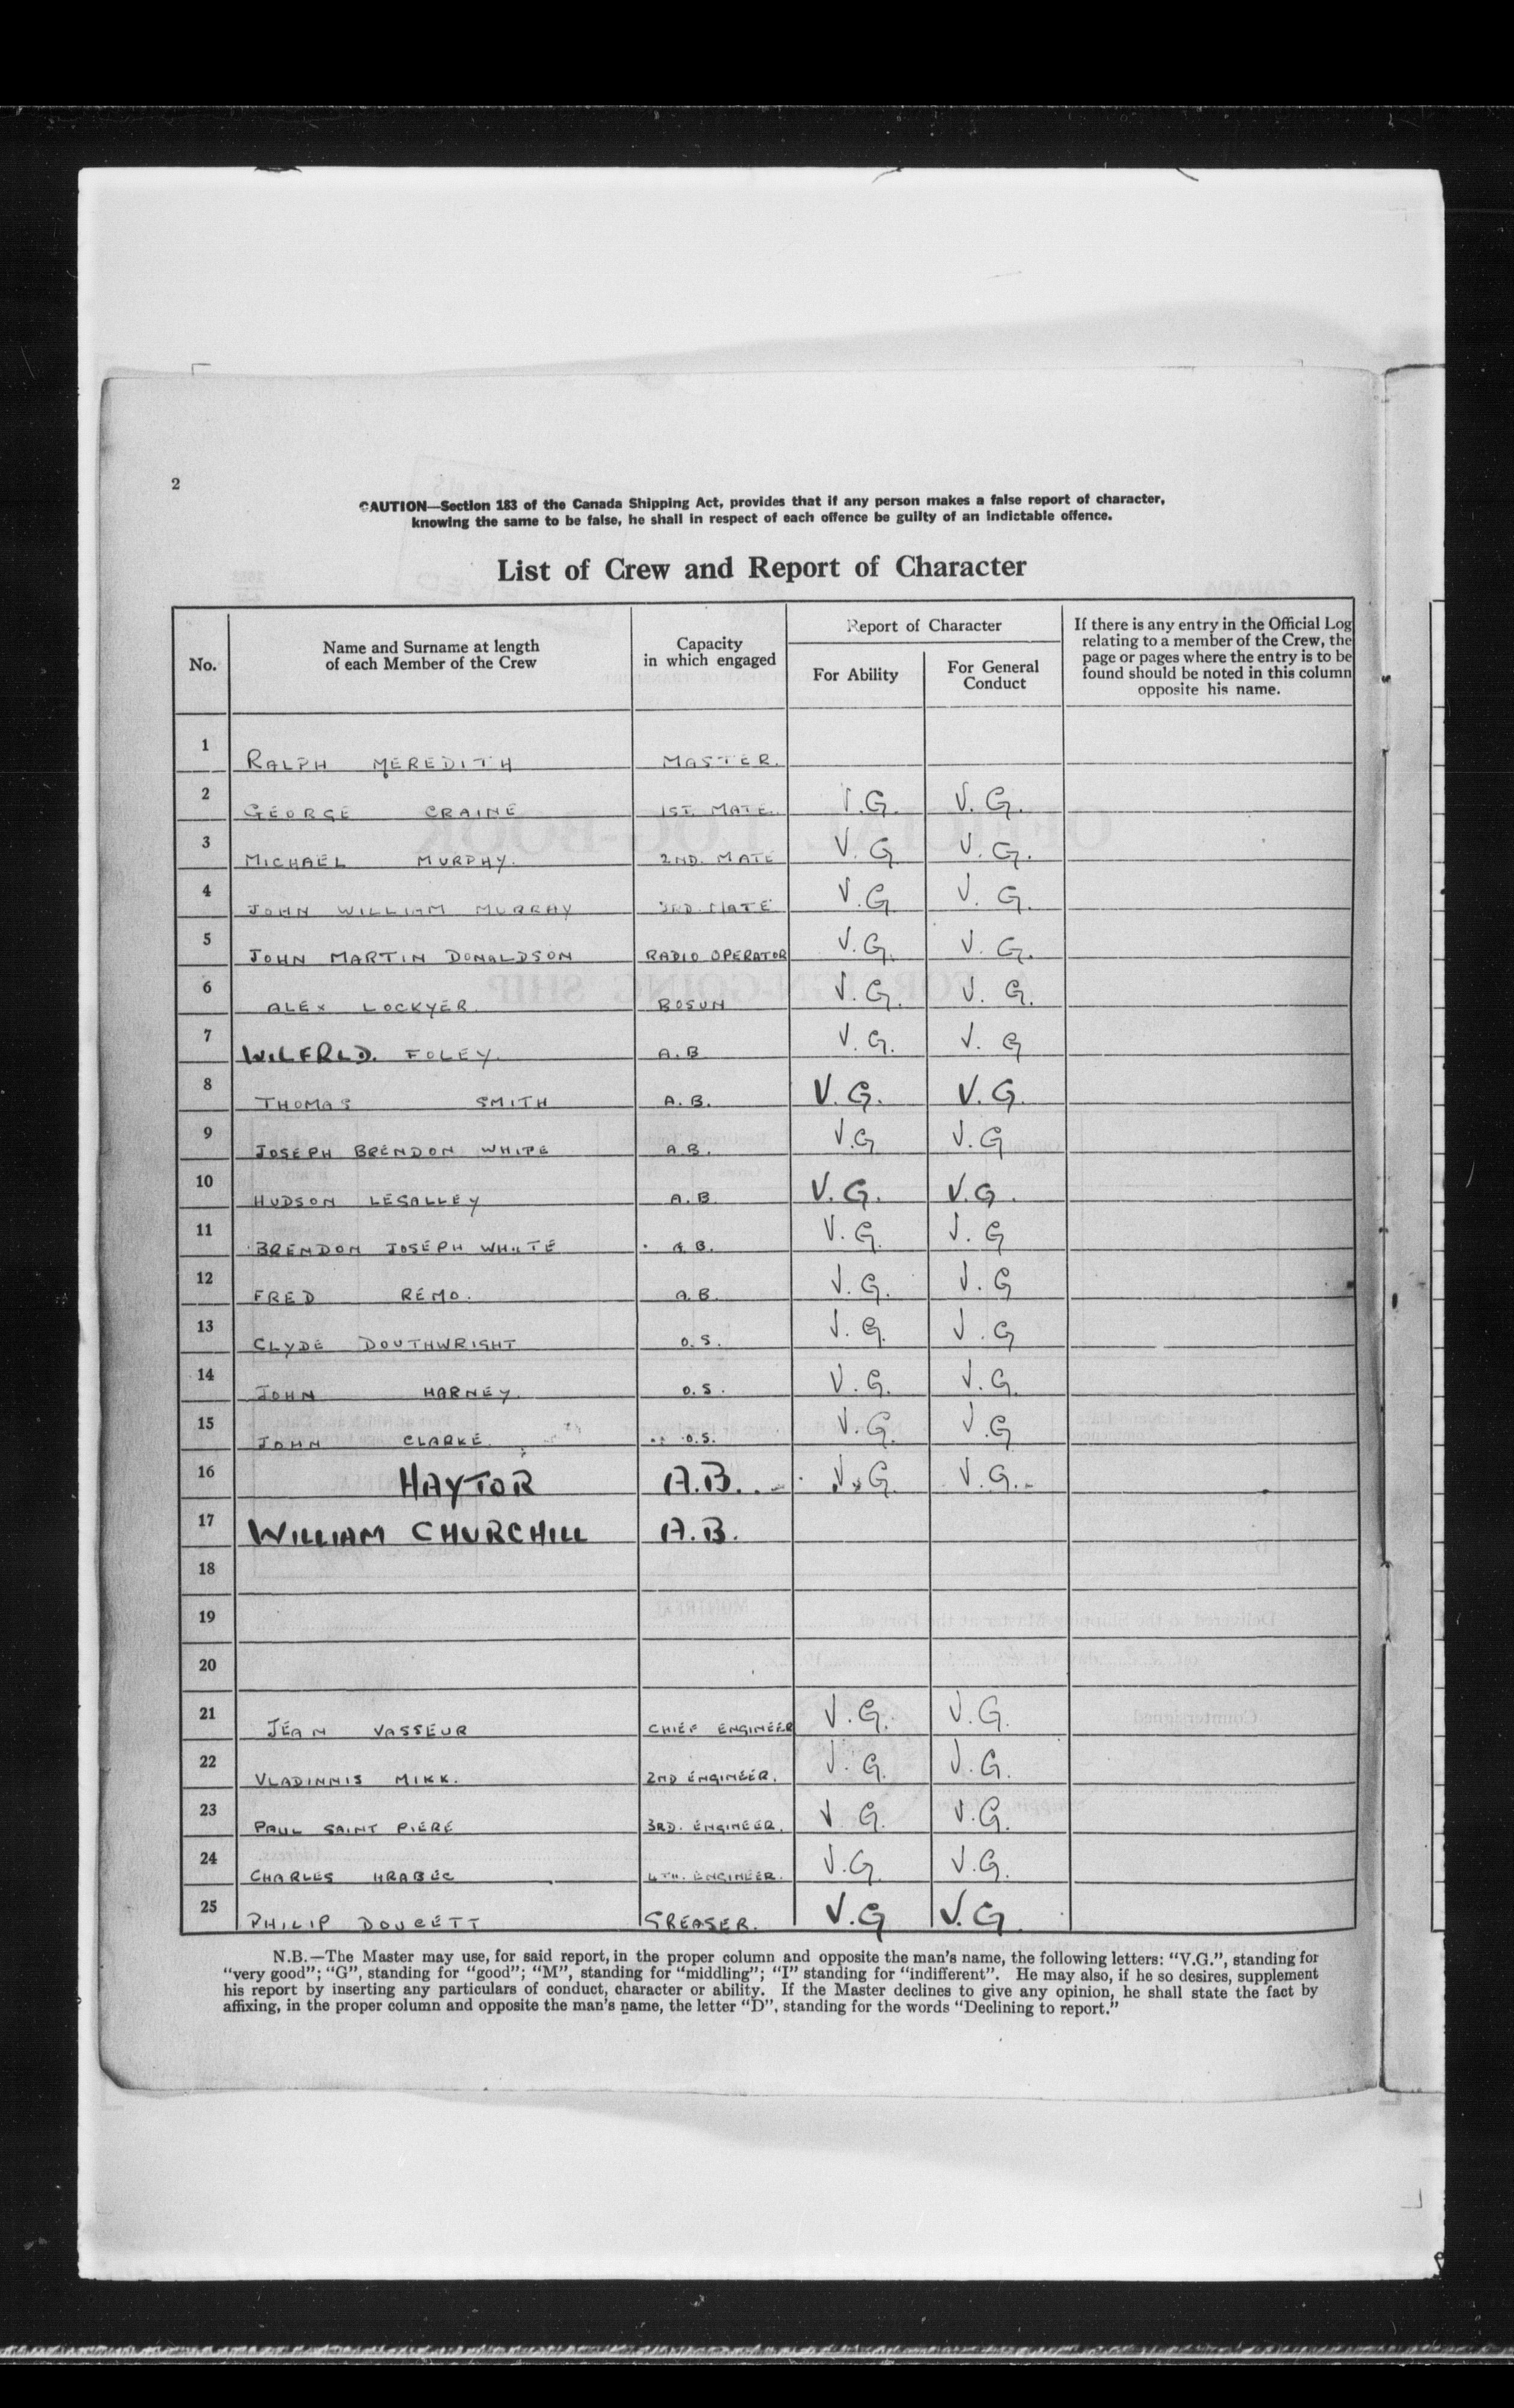 2
CAUTION—Section 183 of the Canada Shipping Act, provides that if any person makes a false report of character,
knowing the same to be false, he shall in respect of each offence be guilty of an indictable offence.
List of Crew and Report of Character
No.
Name and Surname at length
of each Member of the Crew
Capacity
in which engaged
Report of Character
For Ability
For General
Conduct
If there is any entry in the Official Log
relating to a member of the Crew, the
page or pages where the entry is to be
found should be noted in this column
opposite his name.
1 RALPH MEREDITH MASTER.
2 GEORGE CRAINE 1ST. MATE. V.G. V.G.
3 MICHAEL MURPHY. 2ND. MATE V.G V.G.
4 JOHN WILLIAM MURRAY 3RD. MATE V.G V.G.
5 JOHN MARTIN DONALDSON RADIO OPERATOR V.G. V.G.
6 ALEX LOCKYER. BOSUN V.G. V.G.
7 WILFRLD. FOLEY. A.B V.G. V.G
8 THOMAS SMITH A.B. V.G. V.G.
9 JOSEPH BRENDON WHITE A.B. V.G V.G
10 HUDSON LESALLEY A.B. V.G. V.G.
11 BRENDON JOSEPH WHITE A.B. V.G. V.G
12 FRED REMO. A.B. V.G. V.G
13 CLYDE DOUTHWRIGHT O.S. V.G. V.G
14 JOHN HARNEY. O.S. V.G. V.G.
15 JOHN CLARKE. O.S. V.G. V.G
16 HAYTOR A.B. V.G. V.G.
17 WILLIAM CHURCHILL A.B.
18
19
20
21 JEAN VASSEUR CHIEF ENGINEER V.G. V.G.
22 VLADINNIS MIKK. 2ND ENGINEER. V.G. V.G.
23 PAUL SAINT PIERE 3RD. ENGINEER. V.G. V.G.
24 CHARLES HRABEC 4TH. ENGINEER. V.G. V.G.
25 PHILIP DOUCETT GREASER. V.G V.G
N.B.—The Master may use, for said report, in the proper column and opposite the man's name, the following letters: "V.G.", standing for
"very good"; "G", standing for "good"; "M", standing for "middling"; "I" standing for "indifferent". He may also, if he so desires, supplement
his report by inserting any particulars of conduct, character or ability. If the Master declines to give any opinion, he shall state the fact by
affixing, in the proper column and opposite the man's name, the letter "D", standing for the words "Declining to report."